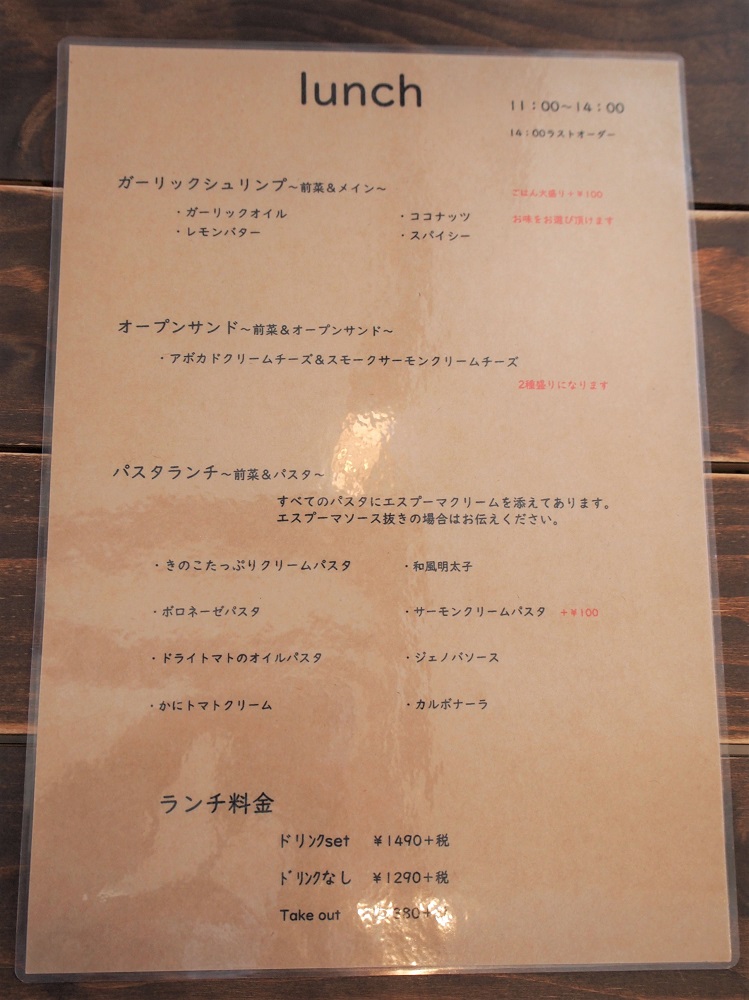 lunch
11:00~14:00
14:00ラストオーダー
ガーリックシュリンプ~前菜&メイン~
ごはん大盛り+¥100
・ガーリックオイル ・ココナッツ
お味をお選び頂けます
・レモンバター ・スパイシー
オープンサンド~前菜&オープンサンド~
・アボカドクリームチーズ&スモークサーモンクリームチーズ
2種盛りになります
パスタランチ~前菜&パスタ~
すべてのパスタにエスプーマクリームを添えてあります。
エスプーマソース抜きの場合はお伝えください。
・きのこたっぷりクリームパスタ ・和風明太子
・ボロネーゼパスタ ・サーモンクリームパスタ +¥100
・ドライトマトのオイルパスタ ・ジェノバソース
・かにトマトクリーム ・カルボナーラ
ランチ料金
ドリンクset ¥1490+税
ドリンクなし ¥1290+税
Take out